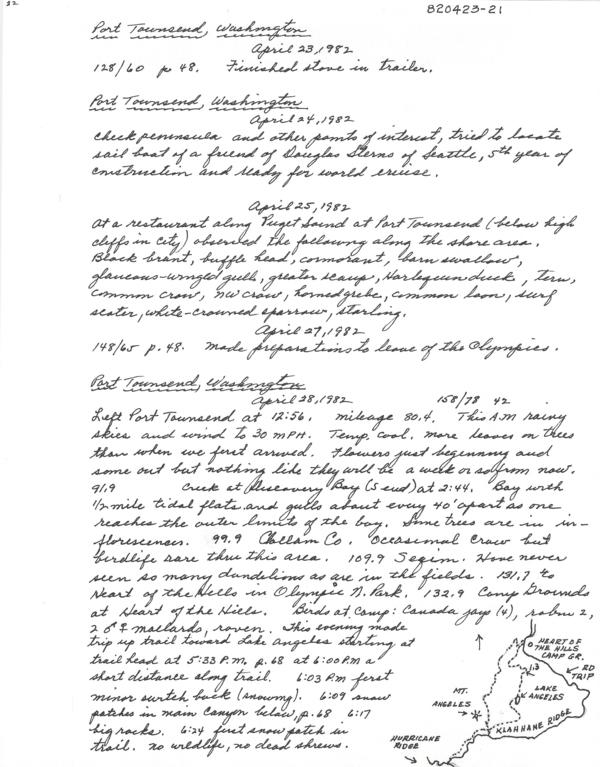 22
820423-21
Port Townsend, Washington
April 23, 1982
128/60 p 48. Finished stove in trailer.
Port Townsend, Washington
April 24, 1982
Check peninsula and other points of interest, tried to locate
sail boat of a friend of Douglas Sterns of Seattle, 5th year of
construction and ready for world cruise.
April 25, 1982
At a restaurant along Puget Sound at Port Townsend (below high
cliffs in city) observed the following along the shore area.
Black brant, buffle head, cormorant, barn swallow,
glaucous-winged gull, greater scaup, Harlequin duck, tern,
common crow, nw crow, horned grebe, common loon, surf
scoter, white-crowned sparrow, starling.
April 27, 1982
148/65 p. 48. Made preparations to leave of the Olympics.
Port Townsend, Washington
April 28, 1982 158/78 42
Left Port Townsend at 12:56. mileage 80.4. This A.M rainy
skies and wind to 30 MPH. Temp. cool. more leaves on trees
than when we first arrived. Flowers just beginning and
some out but nothing like they will be a week or so from now.
91.9 Creek at Discovery Bay (S end) at 2:44. Bay with
1/2 mile tidal flats and gulls about every 40' apart as one
reaches the outer limits of the bay. Some trees are in in-
florescences. 99.9 Clallam Co. Occasional Crow but
birdlife rare thru this area. 109.9 Seqim. Have never
seen so many dandelions as are in the fields. 131.7 to
Heart of the Hills in Olympic N. Park. 132.9 Camp Grounds
at Heart of the Hills. Birds at Camp: Canada jays (4), robin 2,
2 ♂ ♀ mallards, raven. This evening made
trip up trail toward Lake Angeles starting at
trail head at 5:33 P.M. p. 68 at 6:00 P.M a
short distance along trail. 6:03 P.M first
minor switch back (snowing). 6:09 snow
patches in main canyon below, p. 68 6:17
big rocks. 6:24 first snow patch in
trail. no wildlife, no dead shrews.
HEART OF
THE HILLS
CAMP GR.
1.3
RD
TRIP
LAKE
ANGELES
MT.
ANGELES
KLAHHANE RIDGE
HURRICANE
RIDGE